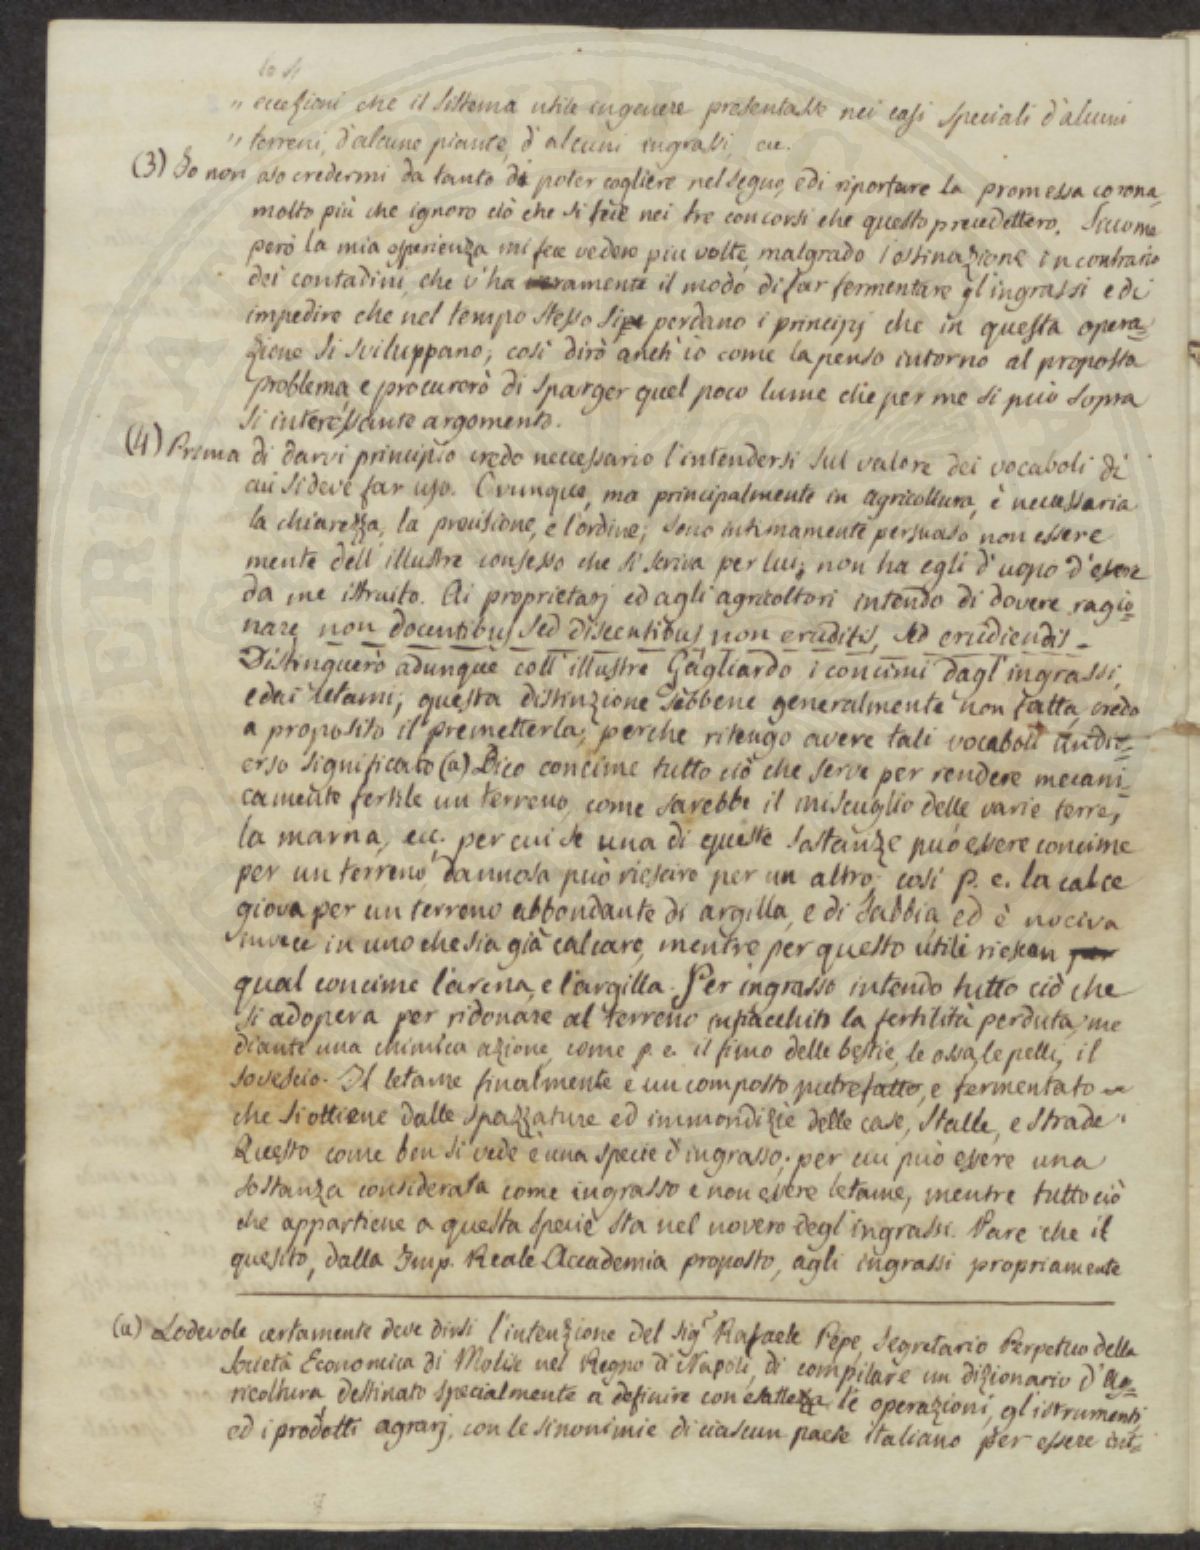 le si
" eccezioni che il sistema utile in genere presentasse nei casi speciali d'alcuni
" terreni, d'alcune piante, d'alcuni ingrassi, ec.
(3) Io non oso credermi da tanto di poter cogliere nel segno, e di riportare la promessa corona,
molto più che ignoro ciò che si fece nei tre concorsi che questo precedettero. Siccome
però la mia esperienza mi fece vedere più volte, malgrado l'ostinazione in contrario
dei contadini, che v'ha veramente il modo di far fermentare gl'ingrassi e di
impedire che nel tempo stesso si perdano i principj che in questa opera=
zione si sviluppano; così dirò anch'io come la penso intorno al proposto
problema, e procurerò di sparger quel poco lume che per me si può sopra
sì interessante argomento.
(4) Prima di darvi principio credo neccessario l'intendersi sul valore dei vocaboli di
cui si deve far uso. Ovunque, ma principalmente in agricoltura, è necessaria
la chiarezza, la precisione, e l'ordine; sono intimamente persuaso non essere
mente dell'illustre consesso che si scriva per lui; non ha egli d'uopo d'essere
da me istruito. Ai proprietarj ed agli agricoltori intendo di dovere ragio=
nare, non docentibus sed discentibus, non eruditis, sed erudiendis.
Distinguerò adunque coll'illustre Gagliardo i concimi dagl'ingrassi,
e dai letami; questa distinzione sebbene generalmente non fatta, credo
a proposito il premetterla; perchè ritengo avere tali vocaboli un di=
erso significato (a) Dico concime tutto ciò che serve per rendere mecani=
camente fertile un terreno, come sarebbe il miscuglio delle varie terre,
la marna, ecc. per cui se una di queste sostanze può essere concime
per un terreno, dannosa può riescire per un altro; così p. e. la calce
giova per un terreno abbondante di argilla, e di sabbia, ed è nociva
invece in uno che sia già calcare, mentre per questo utili riescon
qual concime l'arena, e l'argilla. Per ingrasso intendo tutto ciò che
si adopera per ridonare al terreno infiacchito la fertilità perduta, me
diante una chimica azione, come p. e. il fimo delle bestie, le ossa, le pelli, il
sovescio. Il letame finalmente è un composto putrefatto, e fermentato
che si ottiene dalle spazzature ed immondizie delle case, stalle, e strade.
Questo come ben si vede è una specie d'ingrasso; per cui può essere una
sostanza considerata come ingrasso e non essere letame, mentre tutto ciò
che appartiene a questa specie sta nel novero degl'ingrassi. Pare che il
quesito, dalla Imp. Reale Accademia proposto, agli ingrassi propriamente
(a) Lodevole certamente deve dirsi l'intenzione del Sigr Rafaele Pepe, Segretario Perpetuo della
Società Economica di Molise nel Regno di Napoli, di compilare un dizionario d'ag=
ricoltura, destinato specialmente a definire con esattezza le operazioni, gl'istrumenti,
ed i prodotti agrarj, con le sinonimie di ciascun paese italiano per essere int=